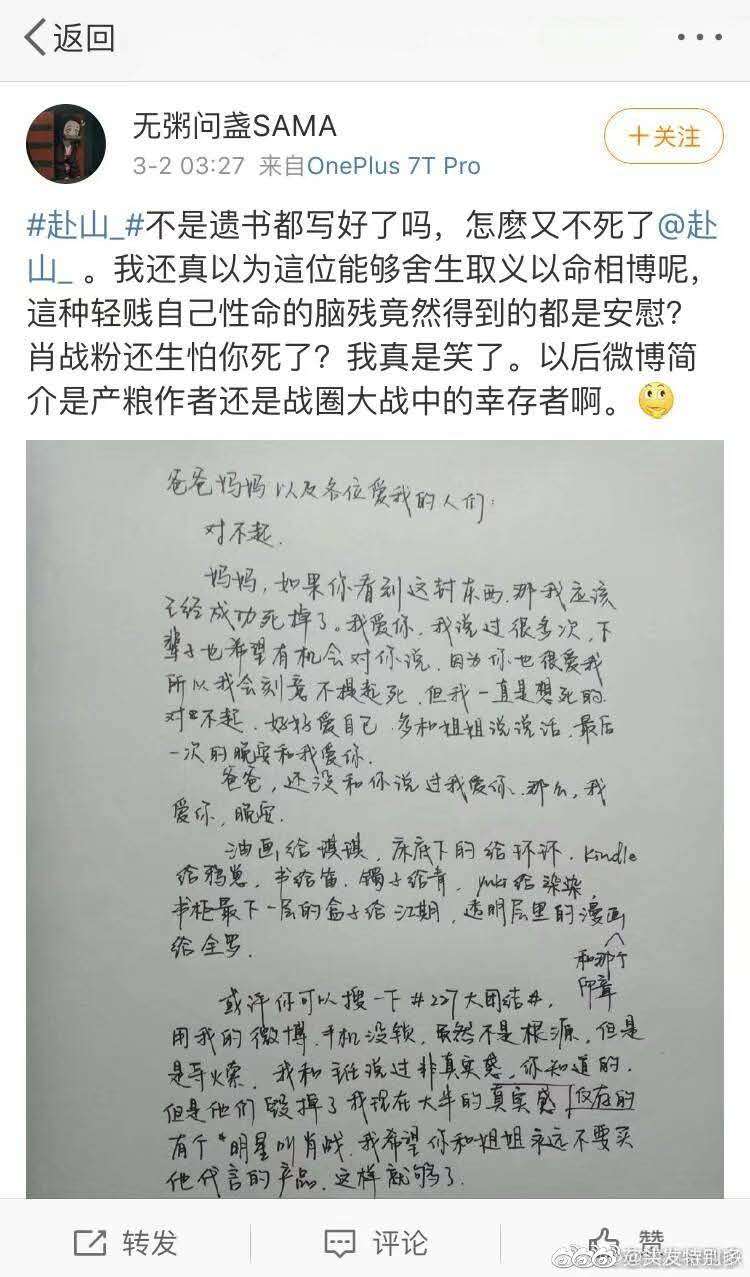 返回
无粥问盏SAMA
+关注
3-2 03:27 来自OnePlus 7T Pro
#赴山_#不是遗书都写好了吗，怎麽又不死了@赴
山_ 。我还真以为這位能够舍生取义以命相博呢，
這种轻贱自己性命的脑残竟然得到的都是安慰？
肖战粉还生怕你死了？我真是笑了。以后微博简
介是产粮作者还是战圈大战中的幸存者啊。
爸爸妈妈以及各位爱我的人们：
对不起．
妈妈，如果你看到这封东西，那我应该
已经成功死掉了。我爱你，我说过很多次，下
辈子也希望有机会对你说，因为你也很爱我
所以我会刻意不提起死，但我一直是想死的．
对不起，好好爱自己，多和姐姐说说话，最后
一次的晚安和我爱你．
爸爸，还没和你说过我爱你．那么，我
爱你，晚安．
油画给琪琪，床底下的给环环．kindle
给鸦崽，书给笛．镯子给青，给染染，
书柜最下一层的盒子给江期，透明层里的漫画
和那个
给全罗．
印章
或许你可以搜一下#227大团结#，
用我的微博，手机没锁，虽然不是根源，但是
是导火索．我和主任说过非真实感，你知道的．
但是他们毁掉了我现在大半的真实感，仅存的
有个*明星叫肖战，我希望你和姐姐永远不要买
他代言的产品，这样就够了．
转发
评论
赞
@头发特别多